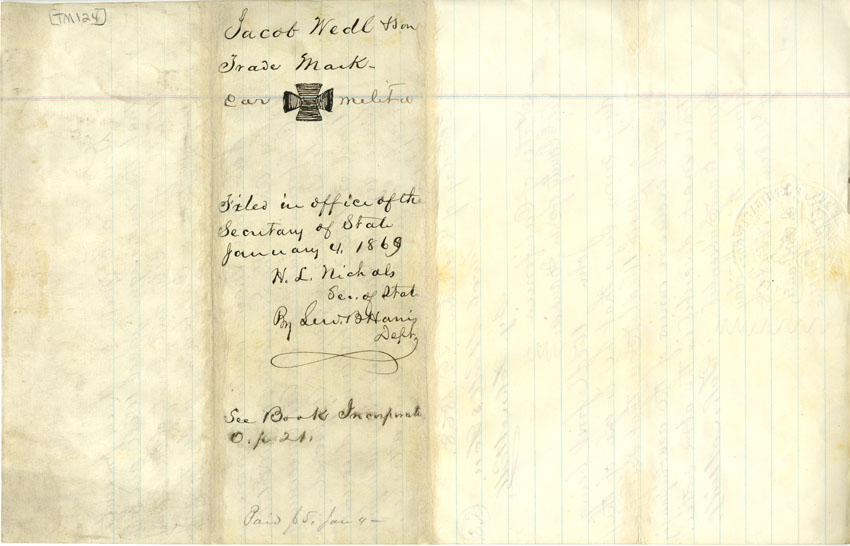 [TM124]
Jacob Wedl & Son
Trade Mark-
Ear milita
Filed in office of the
Secretary of State
January 4, 1869
H. L. Nichols
Sec. of Stat
By Lew. B Harris
Dept.
See Book Incorporate
O. p 21.
Paid $5. Jan 4 -